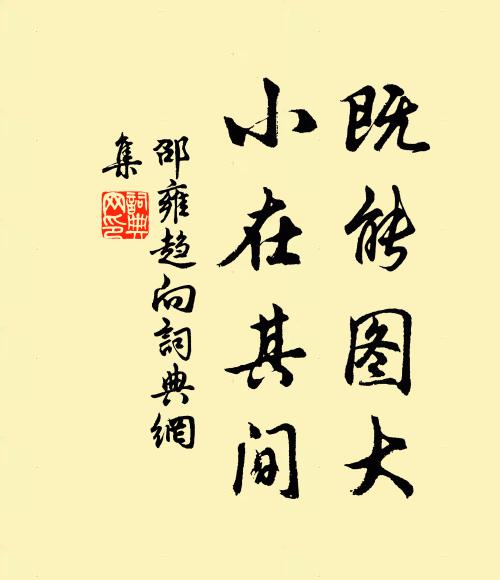 既能图大
小在其间
邵雍趋向詞典網
集
詞典
网印